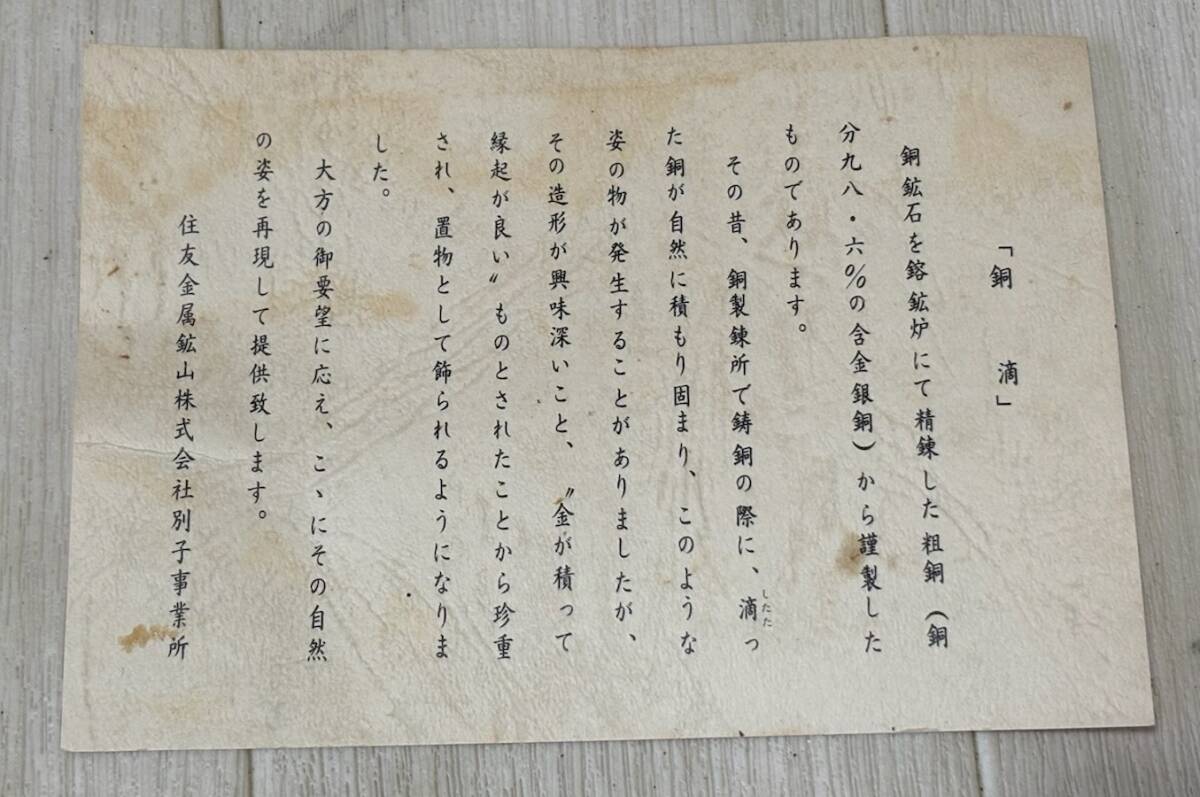 「銅　滴」
銅鉱石を鎔鉱炉にて精錬した粗銅（銅
分九八・六％の含金銀銅）から謹製した
ものであります。
その昔、銅製錬所で鋳銅の際に、滴っ
したた
た銅が自然に積もり固まり、このような
姿の物が発生することがありましたが、
その造形が興味深いこと、〝金が積って
縁起が良い〟ものとされたことから珍重
され、置物として飾られるようになりま
した。
大方の御要望に応え、こゝにその自然
の姿を再現して提供致します。
住友金属鉱山株式会社別子事業所